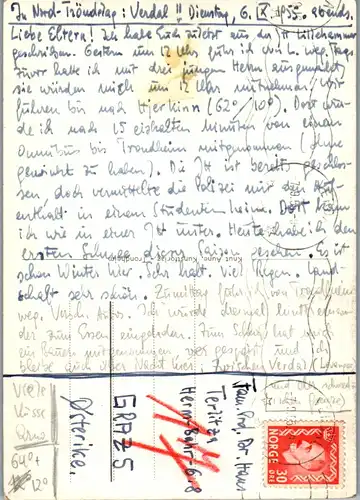 In Nord-Tröndelag: Verdal!! Dienstag, 6. IX. 1955. abends.
Liebe Eltern! Ich habe Euch zuletzt aus der JH Lillehammer
geschrieben. Gestern um 12 Uhr fuhr ich von L. weg. Tags
zuvor hatte ich mit drei jungen Herrn ausgemacht
sie würden mich um 12 Uhr mitnehmen. Wir
führen bis nach Hjerkinn (62°/10°). Dort wur-
de ich nach 15 eiskalten Minuten von einem
Omnibus bis Trondheim mitgenommen (ohne
gewinkt zu haben). Die JH ist bereits geschlos-
sen, doch vermittelte die Polizei mir den Auf-
enthalt in einem Studentenheime. Dort kam
ich wie in einer JH unter. Heute habe ich den
ersten Schnee dieser Saison gesehen. Es ist
schon Winter hier. Sehr kalt. Viel Regen. Land-
schaft sehr schön. Zu Mittag fuhr ich von Trondheim
weg. Versch. Autos. Ich wurde diesmal
zum Essen eingeladen. Zum Schluß hat mich
ein Bauer mitgenommen, und
bleibe auch über Nacht hier. Zwischen Verdal
und der
Viele
Küsse
64° +
12°
Frau Prof. Dr. Hans
Terlitza
Herm. Bahr G. 8
GRAZ 5
Österrike.
NORGE
30
ØRE